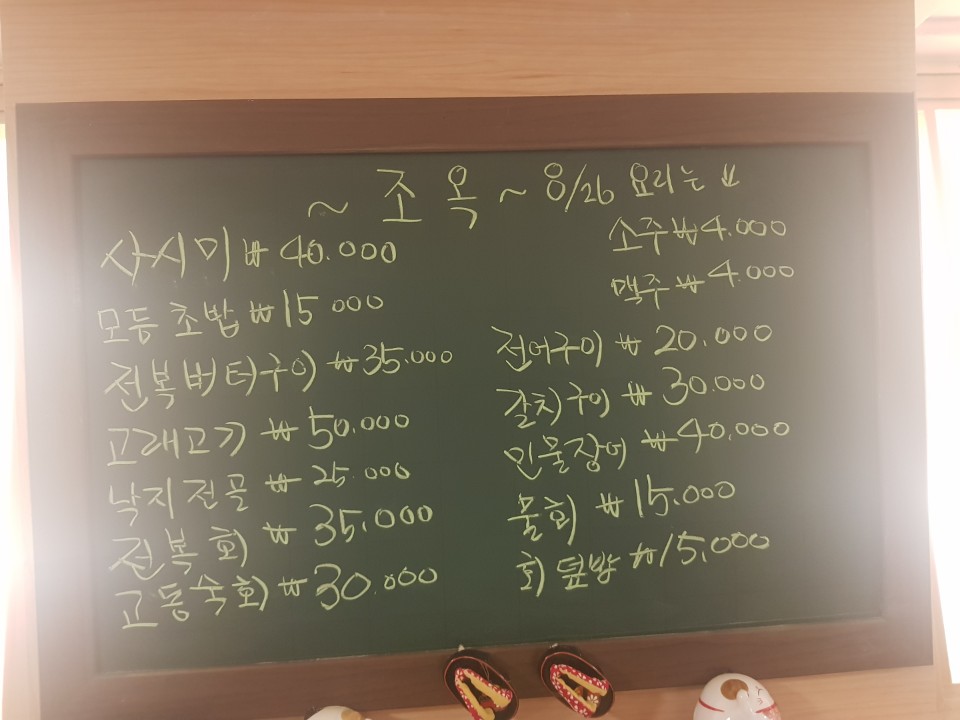 ~ 조옥 ~ 8/26 요리는 ↓
사시미 ₩ 40.000
모듬 초밥 ₩15 000
전복버터구이 ₩35.000
고래고기 ₩50.000
낙지전골 ₩ 25.000
전복회 ₩35.000
고동숙회 ₩30.000
소주 ₩4.000
맥주 ₩4.000
전어구이 ₩ 20.000
갈치구이 ₩30.000
민물장어 ₩40.000
물회 ₩15.000
회덮밥 ₩15,000